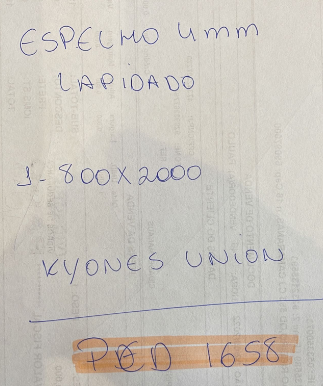 ESPELHO 4mm
LAPIDADO
1- 800X2000
KYONES UNION
PED 1658